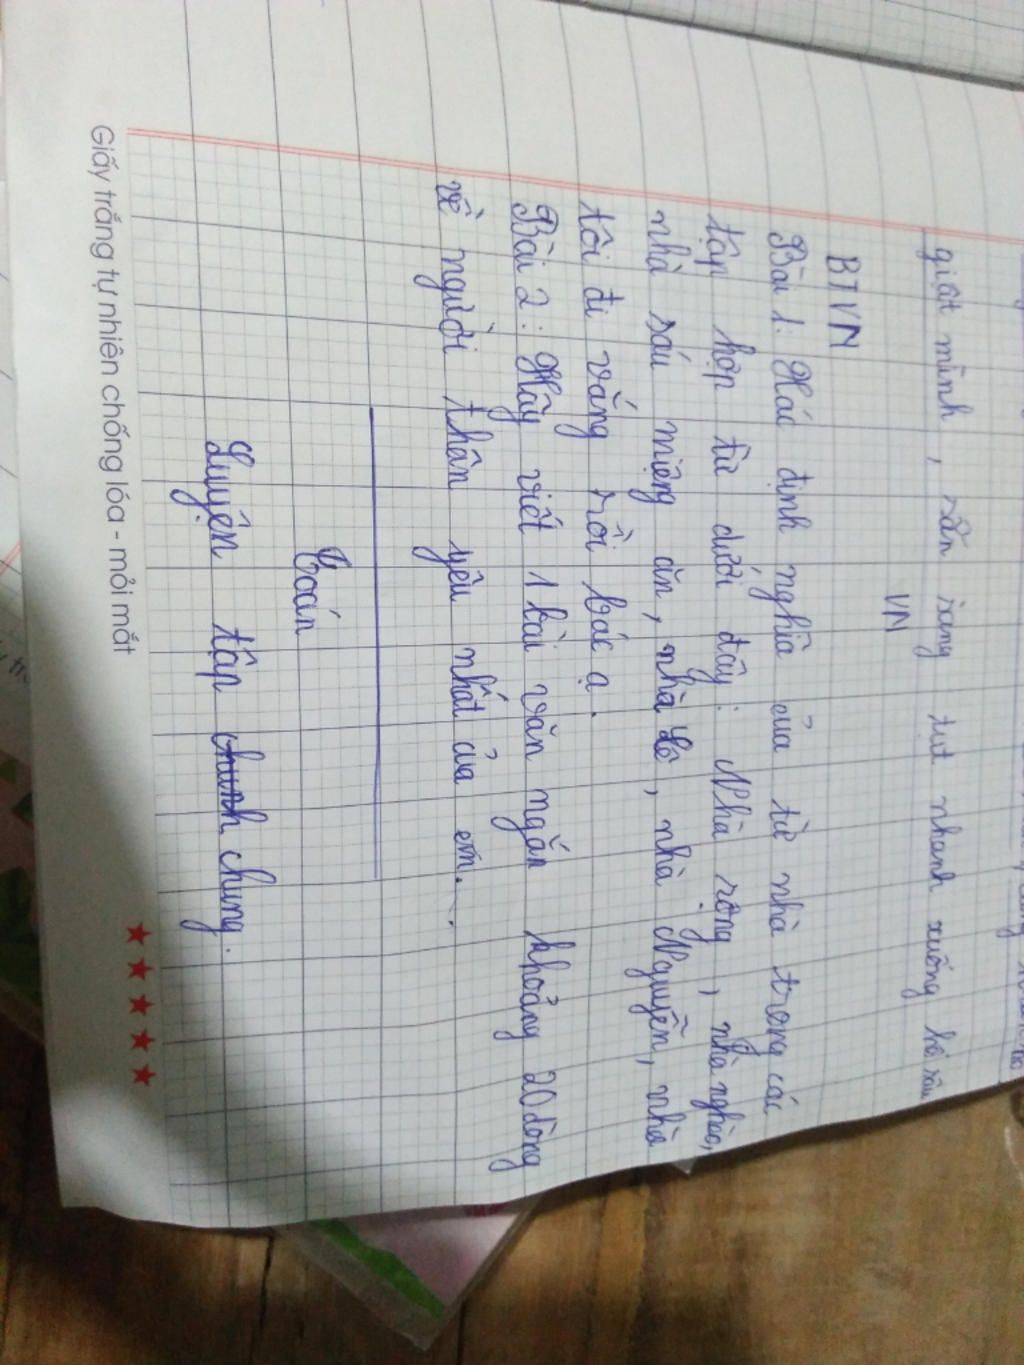 giật mình, sẵn sàng tụt nhanh xuống hố sâu
VN
BTVN
Bài 1: Xác định nghĩa của từ nhà trong các
tập hợp từ dưới đây: Nhà rộng, nhà nghèo,
nhà sáu miệng ăn, nhà Lê, nhà Nguyễn, nhà
tôi đi vắng rồi bác ạ.
Bài 2: Hãy viết 1 bài văn ngắn khoảng 20 dòng
về người thân yêu nhất của em.
Toán
Luyện tập chung.
Giấy trắng tự nhiên chống lóa - mỏi mắt